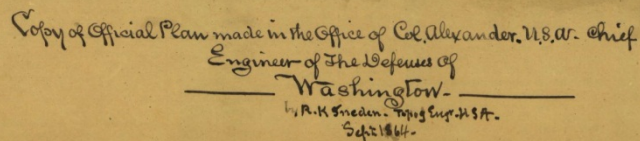 Copy of Official Plan made in the Office of Col. Alexander. U.S.A. Chief
Engineer of The Defenses of
Washington.
by R.K Sneden. Topog Engr. U.S.A.
Sept 1864.